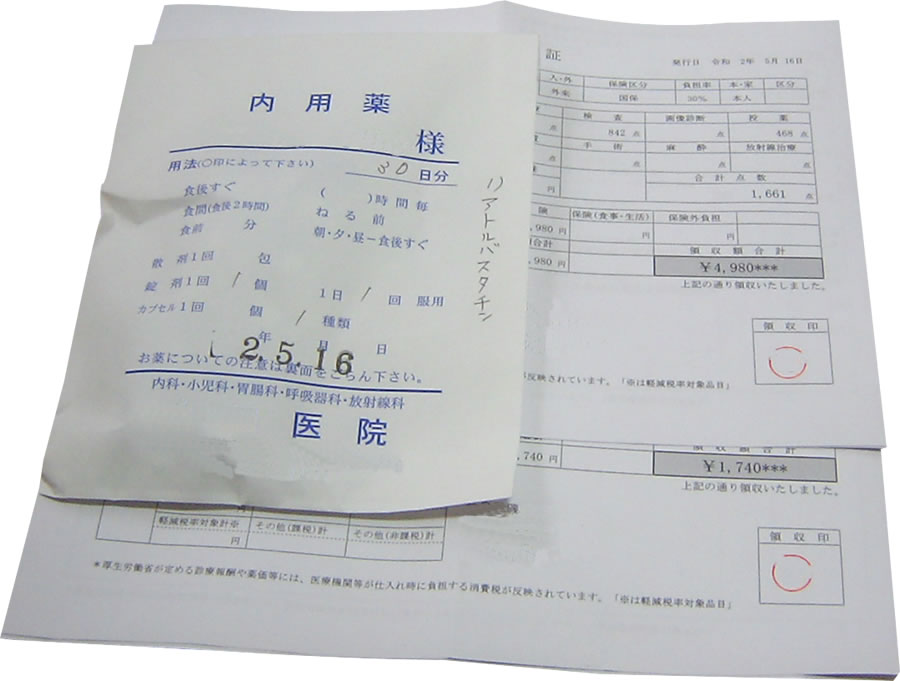 内用薬
様
用法(○印によって下さい)
30日分
食後すぐ ( )時間毎
食間(食後2時間) ねる前
食前 分 朝・夕・昼-食後すぐ
散剤1回 包
錠剤1回 1個 1日1回服用
カプセル1回 個 1種類
年 月 日
2.5.16
お薬についての注意は裏面をごらん下さい。
内科・小児科・胃腸科・呼吸器科・放射線科
医院
1)アトルバスタチン
証
発行日 令和 2年 5月16日
人・外 保険区分 負担率 本・家 区分
外来 国保 30% 本人
検査 画像診断 投薬
点 842点 点 468点
手術 麻酔 放射線治療
点 点 点 点
合計点数
円 1,661点
険 保険(食事・生活) 保険外負担
,980円 円 円
合計 領収額合計
,980円 ¥4,980***
上記の通り領収いたしました。
領収印
が反映されています。「※は軽減税率対象品目」
領収額合計
,740円 ¥1,740***
上記の通り領収いたしました。
領収印
軽減税率対象計※ その他(課税)計 その他(非課税)計
円
*厚生労働省が定める診療報酬や薬価等には、医療機関等が仕入れ時に負担する消費税が反映されています。「※は軽減税率対象品目」